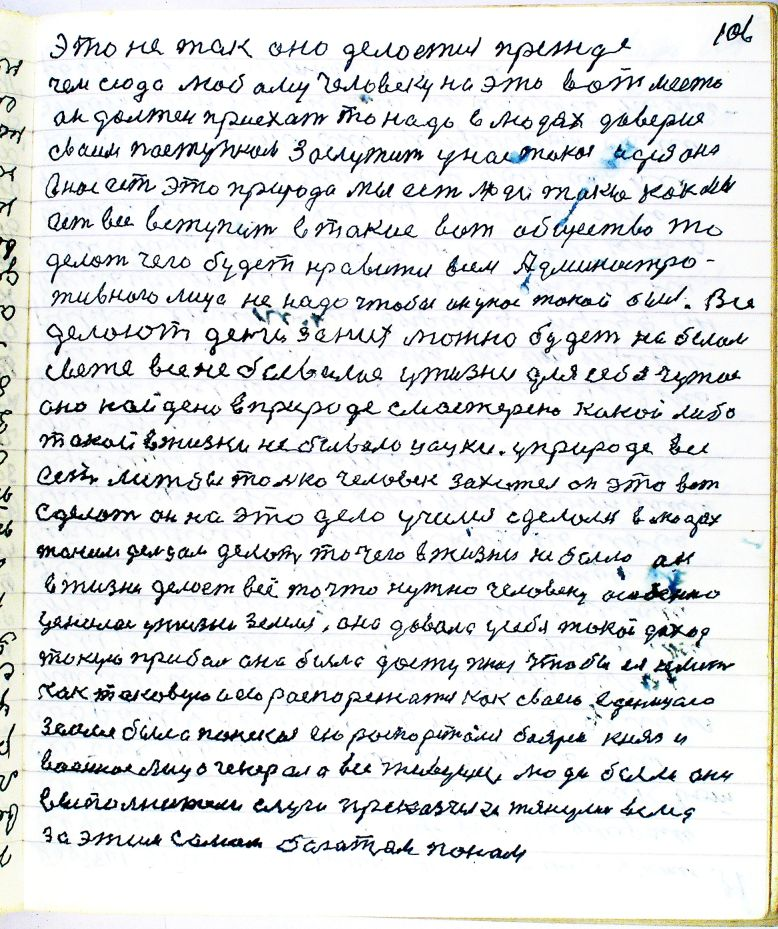 106
Это не так оно делается прежде
чем сюда любому человеку на это вот место
он должен приехат то надо в людях доверие
своим поступком заслужит у нас такая
она ест это природа мы ест люди такие как мы
ест все вступит в такие вот общество то
делат чего будет нравится всем Администра-
тивного лица не надо чтобы он у нас такой был. Все
делают денги за них можно будет на белом
свете все не бывалое у жизни для себя чужое
оно найдено в природе смастерено какой либо
такой в жизни не бывало науки. у природе все
ест лиш бы толко человек захотел он это вот
сделат он на это дело учился сделали в людях
таким делам делат то чего в жизни не было он
в жизни делает всё то что нужно человеку особенно
ценилас у жизни земля, она давала у себя такой доход
такую прибал она была доступная чтобы ея имет
как таковую и ею распорежатся как своею
земля была панская ею распоряжалис бояри княз и
военное лицо генерала все живущие люди были они
выполнители слуги приказчики тянулис вслед
за этим самим багатым паном